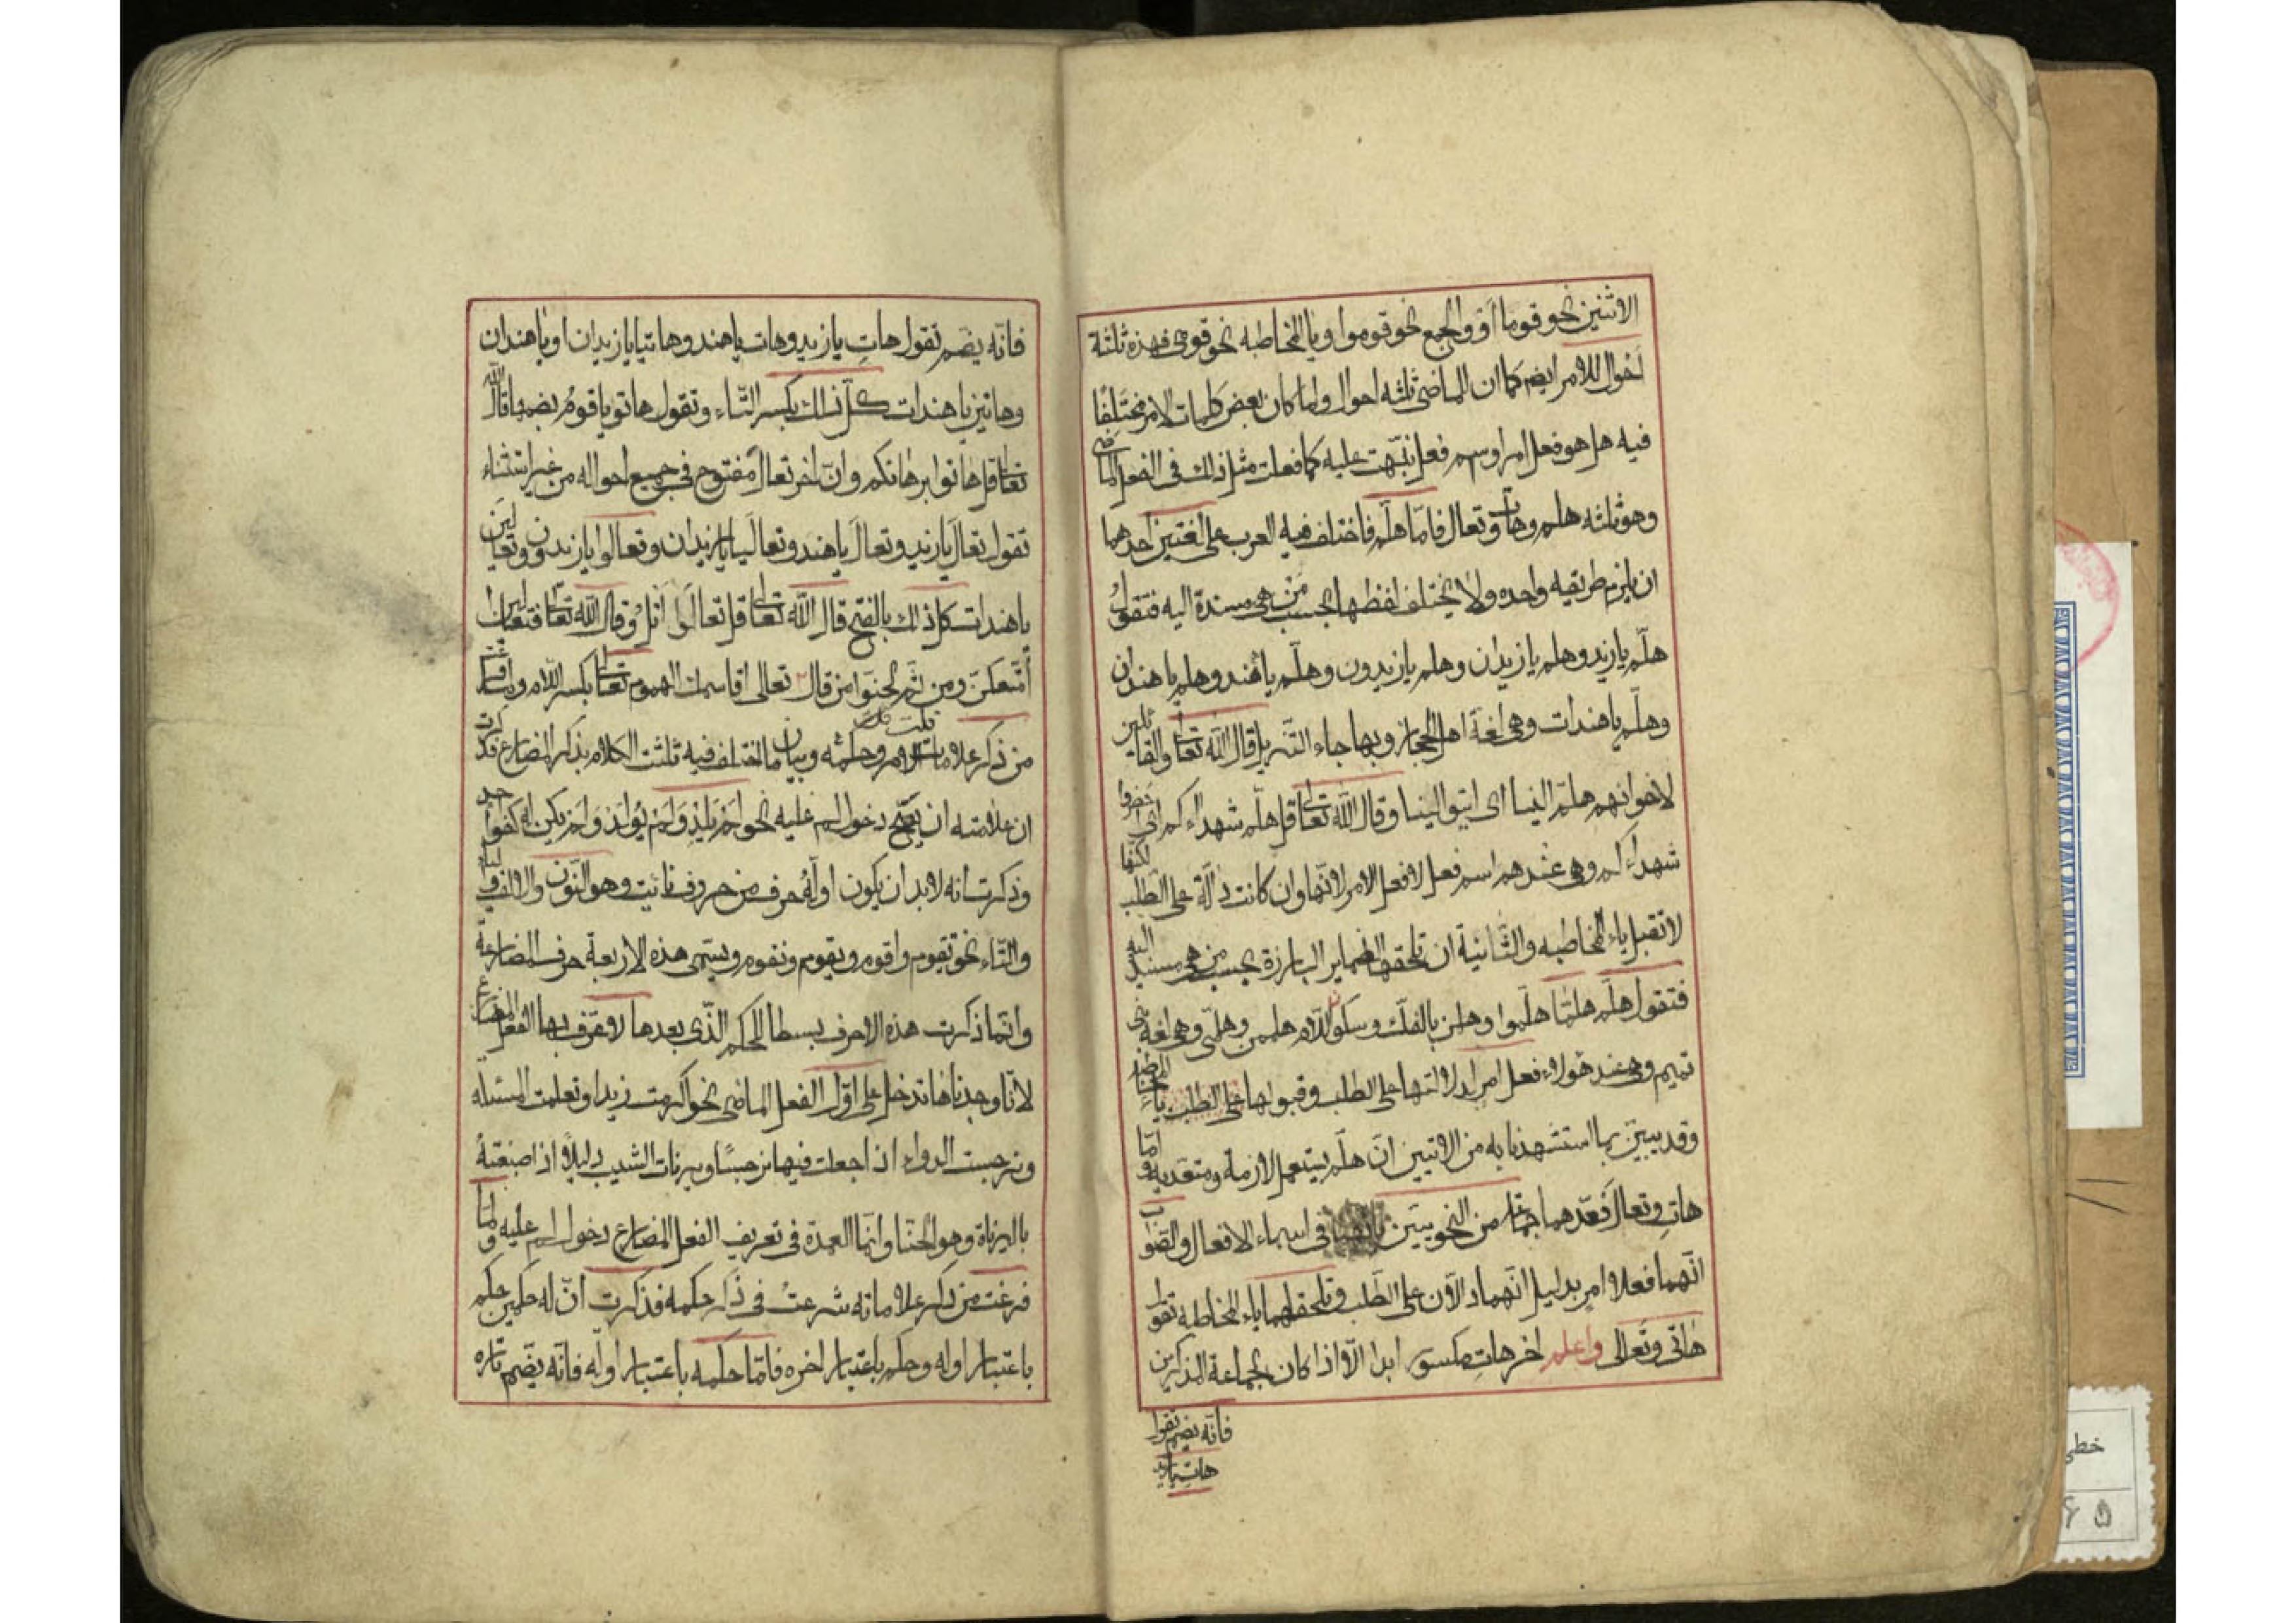 الاثنين نحو قوما او واو الجمع نحو قوموا ويا المخاطبه نحو قومى فهذه ثلثة
احوال للامر ايضم كما ان للماضى ثلثه احوال ولما كان بعض كلمات الامر مختلفًا
فيه هل هو فعل امر او سم فعل نبّهت عليه كما فعلت مثل ذلك فى الفعل الماضى
وهو ثلثه هلم وهات وتعال فامّا هلّم فاختلف فيه العرب على لغتين احدهما
ان يلزم طريقه واحده ولا يختلف لفظها بحسب مَنْ هى مسندة اليه فتقول
هلّم يا زيد وهلم يا زيدان وهلم يا زيدون وهلّم يا هند وهلم يا هندان
وهلّم يا هندات وهى لغة اهل الحجاز وبها جاء التنزيل قال الله تعالى والقائلين
لاخوانهم هلمّ الينا اى ايتوا الينا وقال الله تعالى قل هلّم شهداءكم اى احضروا
شهداءكم وهى عندهم اسم فعل لا فعل الامر لانّها وان كانت دالّة على الطلب لكنّها
لا تقبل ياء المخاطبه والثّانية ان تلحقها الضماير البارزة بحسب من هى مسند اليه
فتقول هلّم هلمّا هلّموا وهلن بالفك وسكون اللام هلمن وهلمّى وهى لغة بنى
تميم وهى عند هؤلاء فعل امر لدلالتها على الطلب وقبولها على الطلب ياء المخاطبة
وقد يبيّن بما استشهدنا به من الايتين انّ هلّم يستعمل لازمة ومتعديه وامّا
هات وتعال فعّدهما جماعة من النحويين فى اسماء الافعال والصّواب
انّهما فعلا امر بدليل انّهما دالّان على الطّلب وتلحقهما ياء المخاطبه تقول
هاتى وتعالى واعلم اخر هات مكسور ابدا الّا اذا كان لجماعة المذكرين
فانّه يضم تقول
هات يا زيد
فانّه يضم تقول هاتِ يا زيد وهات يا هند وهاتيا يا زيدان او يا هندان
وهاتين يا هندات كلّ ذلك بكسر التّاء وتقول هاتو يا قومُ بضمها قال الله
تعالى قل هاتوا برهانكم وانّ اخر تعالَ مفتوح فى جميع احواله من غير استثناء
تقول تعالَ يا زيد وتعالَ يا هند وتعالَيا يا زيدان وتعالوا يا زيدون وتعالين
يا هندات كل ذلك بالفتح قال الله تعالى قل تعالَوا اتلُ وقال الله تعالى فتعالين
اُمتّعكنّ ومن ثم لحنوا من قال تعالى اقاسمك الهموم تعالى بكسر اللام ولما فرغت
من ذكر علامات الامر وحكمه وبيان ما اختلف فيه ثلثت الكلام بذكر المضارع فذكرت
ان علامته ان يصّح دخول لم عليه نحو لم يلد ولم يُولَد ولم يكن له كفوًا احد
وذكرت انه لا بد ان يكون اوله حرف من حروف نائيت وهو النّون والالف والياء
والتّاء نحو تقوم واقوم ويقوم ونقوم ويسمّى هذه الاربعة حرف المضارعة
وانّما ذكرت هذه الاحرف بسطا للحكم الّذى بعدها لا وتعرّف بها الفعل المضارع
لانّا وجدناها تدخل على اول الفعل الماضى نحو اكرمت زيدا وتعلمت المسئله
ونرجست الدواء اذ اجعلت فيها نرجسًا ويرنات الشيب دليلًا اذ اصبغتهُ
باليرناة وهو الحنّا وانّما العمدة فى تعريف الفعل المضارع دخول لم عليه ولمّا
فرغت من ذكر علاماته شرعتُ فى ذكر حكمه فذكرت انّ له حكمين حكم
باعتبار اوله وحكم باعتبار اخره فامّا حكمه باعتبار اولّه فانّه يضّم تاره
خطى